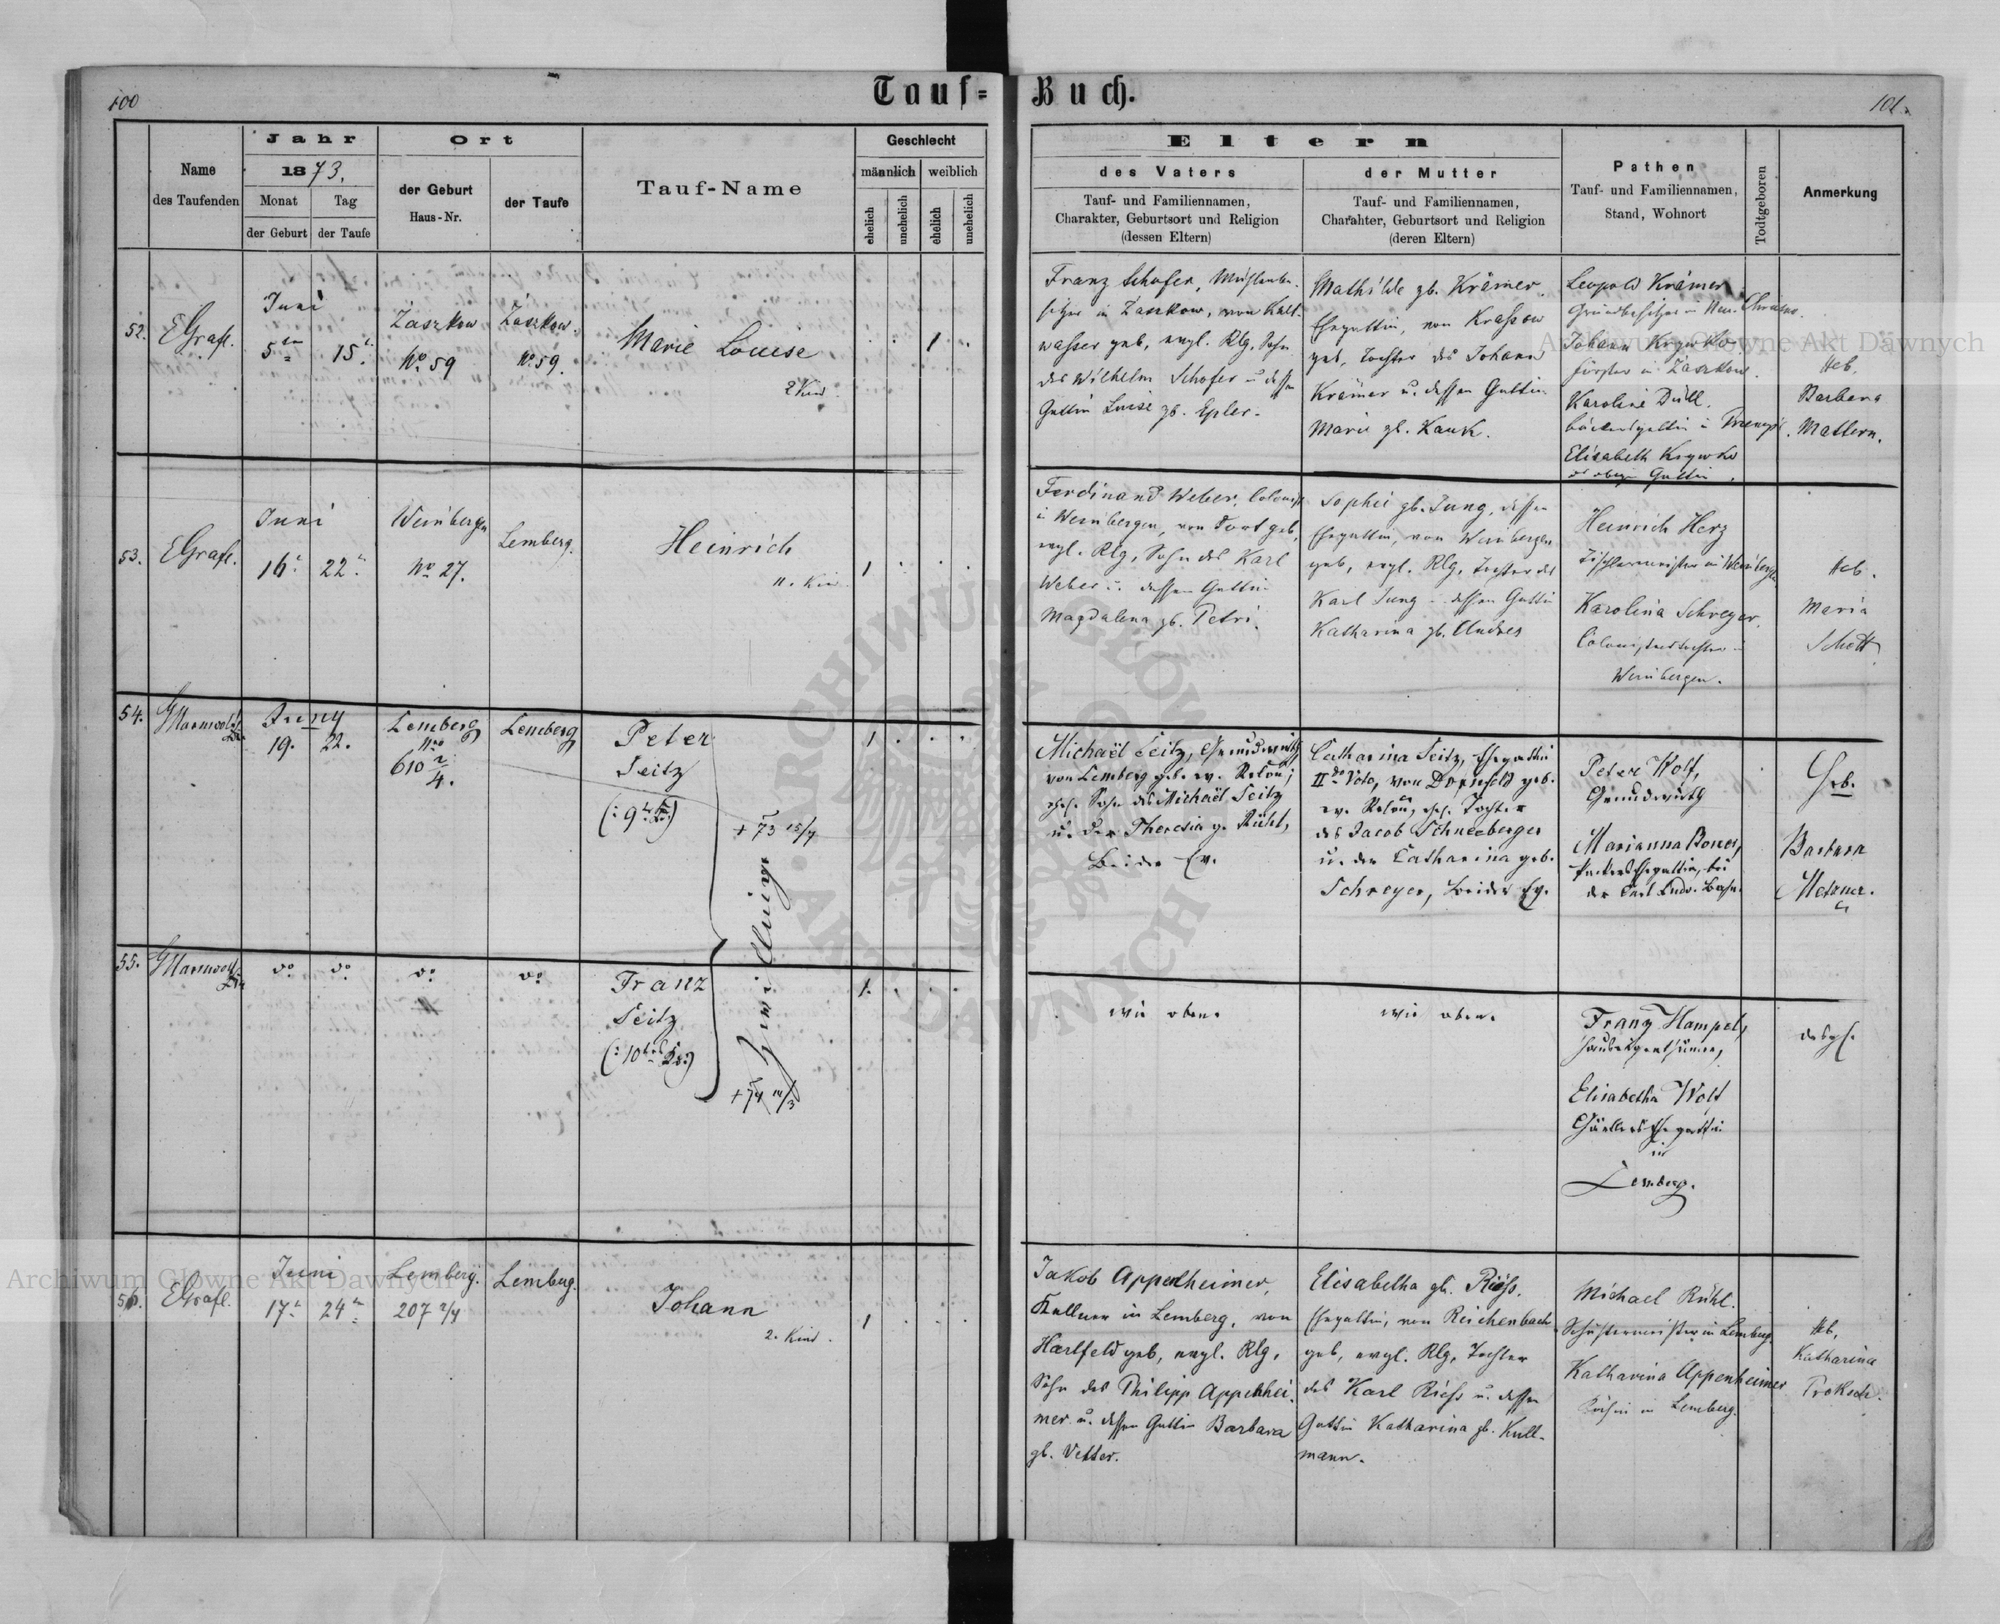 100
Tauf=
Buch.
101.
Name
des Taufenden
Jahr
1873.
Monat
Tag
der Geburt
der Taufe
Ort
der Geburt
Haus-Nr.
der Taufe
Tauf-Name
Geschlecht
männlich
weiblich
ehelich
unehelich
ehelich
unehelich
Eltern
des Vaters
Tauf- und Familiennamen,
Charakter, Geburtsort und Religion
(dessen Eltern)
der Mutter
Tauf- und Familiennamen,
Charakter, Geburtsort und Religion
(deren Eltern)
Pathen
Tauf- und Familiennamen,
Stand, Wohnort
Todtgeboren
Anmerkung
52.
EGrafl.
Juni
5
15
Zaszkow
No 59
Zaszkow.
No. 59.
Marie Louise
2 Kind
1
Franz Schofer,
in Zaszkow, von Kalt-
wasser geb, evgl. Rlg, Sohn
des Wilhelm Schofer u dessen
Gattin Luise gb. Epler.
Mathilde gb. Krämer,
Ehegattin, von
geb, Tochter des Johann
Krämer u. dessen Gattin
Marie gb. Kauk.
Leopold Krämer
Grundbesitzer
Johann Krywko
Förster in Zaszkow.
Karoline Düll.
Elisabeth Krywko
Gattin.
Heb.
Barbara
Mattern.
53.
EGrafl.
Juni
16
22
Weinbergen
No 27.
Lemberg.
Heinrich
11. Kind
1
Ferdinand Weber, Colonist
in Weinbergen, von dort geb,
evgl. Rlg, Sohn des Karl
Weber u. dessen Gattin
Magdalena gb. Petri.
Sophie gb. Jung, dessen
Ehegattin, von Weinbergen
geb, evgl. Rlg, Tochter des
Karl Jung u. dessen Gattin
Katharina gb. Andres
Heinrich Herz
Tischlermeister in Weinbergen
Karolina Schreyer.
Colonistentochter in
Weinbergen.
Heb.
Maria
Schott
54.
Juny
19.
22.
Lemberg
Nro
610 2/4.
Lemberg
Peter
Seitz
+ 73 15/7
Zwillinge
1
Michaël Seitz, Grundwirth
von Lemberg geb. ev.
Sohn des Michaël Seitz
u. der Theresia g. Rühl,
beide Ev.
Catharina Seitz, Ehegattin
II Voto, von Dornfeld geb.
ev. Tochter
des Jacob Schneeberger
u. der Catharina geb.
Schreyer, beide Ev.
Peter Wolf,
Grundwirth
Marianna
Ehegattin, bei
der Carl Ludw. Bahn.
Heb.
Barbara
Metzner.
55.
do
do
do
do
Franz
Seitz
+ 74 14/3
1.
wie oben.
wie oben.
Franz Hampel,
Elisabetha Wolf
Ehegattin
in
Lemberg.
desgl.
56.
EGrafl.
Juni
17
24
Lemberg.
207 2/4
Lemberg.
Johann
2. Kind.
1
Jakob Appenheimer,
Kellner in Lemberg, von
Hartfeld geb, evgl. Rlg,
Sohn des Philipp Appenhei-
mer u. dessen Gattin Barbara
gb. Vetter.
Elisabetha gb. Riess.
Ehegattin, von Reichenbach
geb, evgl. Rlg, Tochter
des Karl Riess u. dessen
Gattin Katharina gb. Kull-
mann.
Michael Rühl.
Schustermeister in Lemberg
Katharina Appenheimer
Köchin in Lemberg.
Heb.
Katharina
Proksch.
Archiwum Główne Akt Dawnych
Archiwum Główne Akt Dawnych
ARCHIWUM GŁÓWNE AKT DAWNYCH